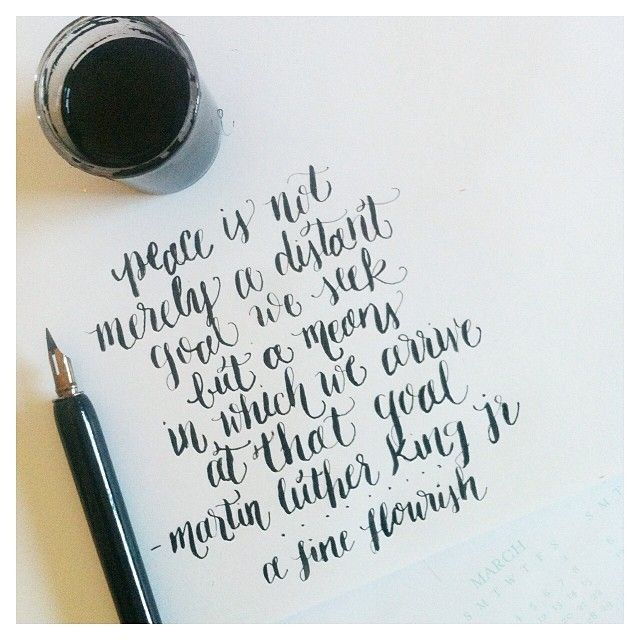 peace is not
merely a distant
goal we seek
but a means
in which we arrive
at that goal
-martin luther king jr
a fine flourish
MARCH
S M T W T F S